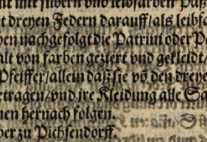 mit silber vnd leibfarben Paß
dreyen Federn darauff/als leibfa
hen nachgefolgt die Patrim oder P
alt von farben geziert vnd gekleidt/
Pfeiffer/allein daß sie võ den dreye
etragen/vnd jre Kleidung alle Sa
nen hernach folgen.
ber zu Pichsendorff.